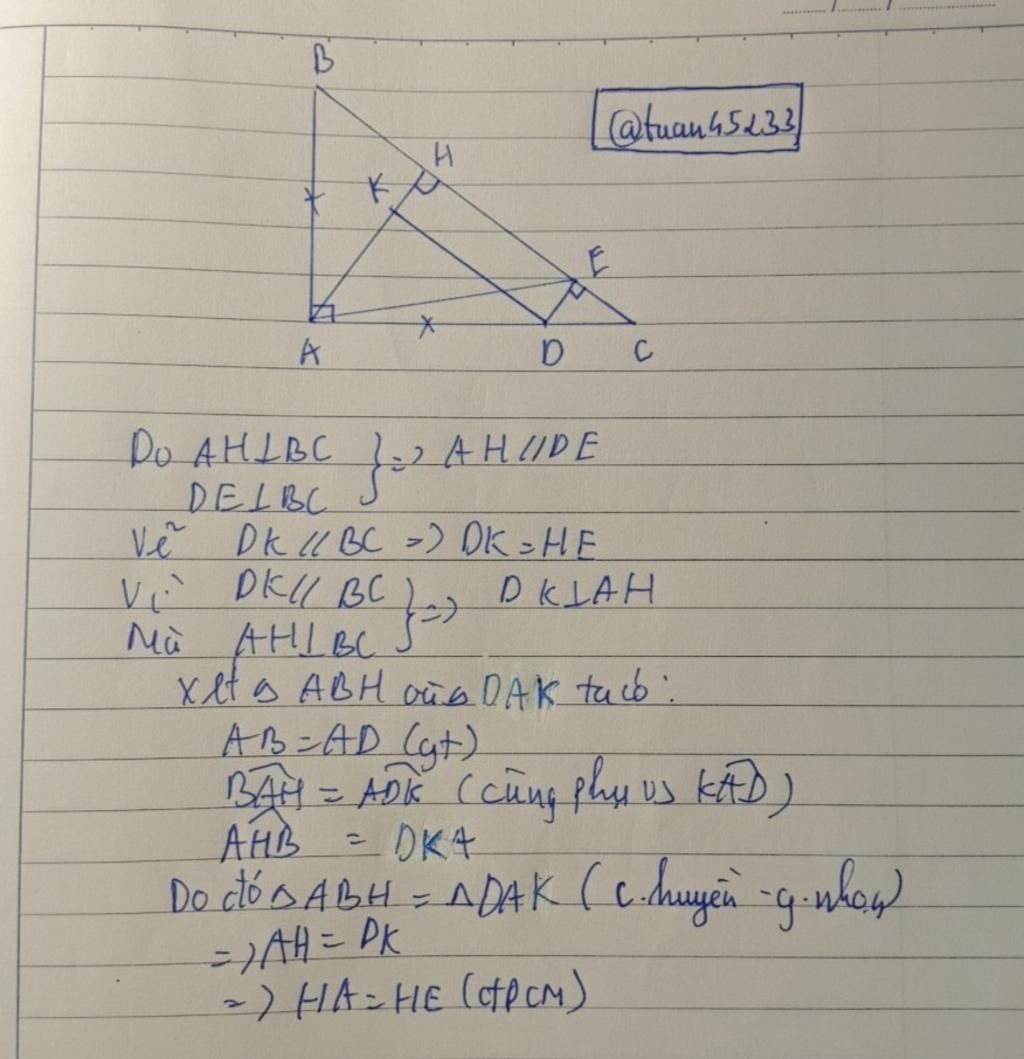 B
@tuan45233
H
K
E
A
D
C
Do AH⊥BC
DE⊥BC } => AH//DE
Vẽ DK // BC => DK = HE
Vì DK// BC
Mà AH⊥BC } => DK⊥AH
xét △ ABH và △ DAK ta có:
AB = AD (gt)
BAH = ADK (cùng phụ vs KAD)
AHB = DKA
Do đó △ABH = △DAK (c.huyền - g.nhọn)
=> AH = DK
=> HA = HE (đpCM)